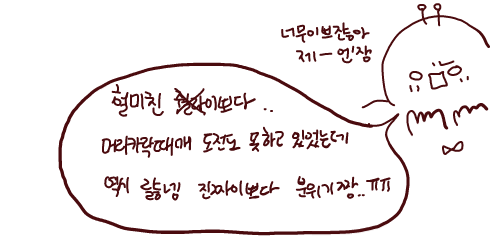 너무이쁘잖능아
제ㅡ엔장
헐미친 이쁘다..
머리카락때매 도전도 못하고 있었는데
역시 릏능넹 진짜이쁘다 분위기짱..ㅠㅠ